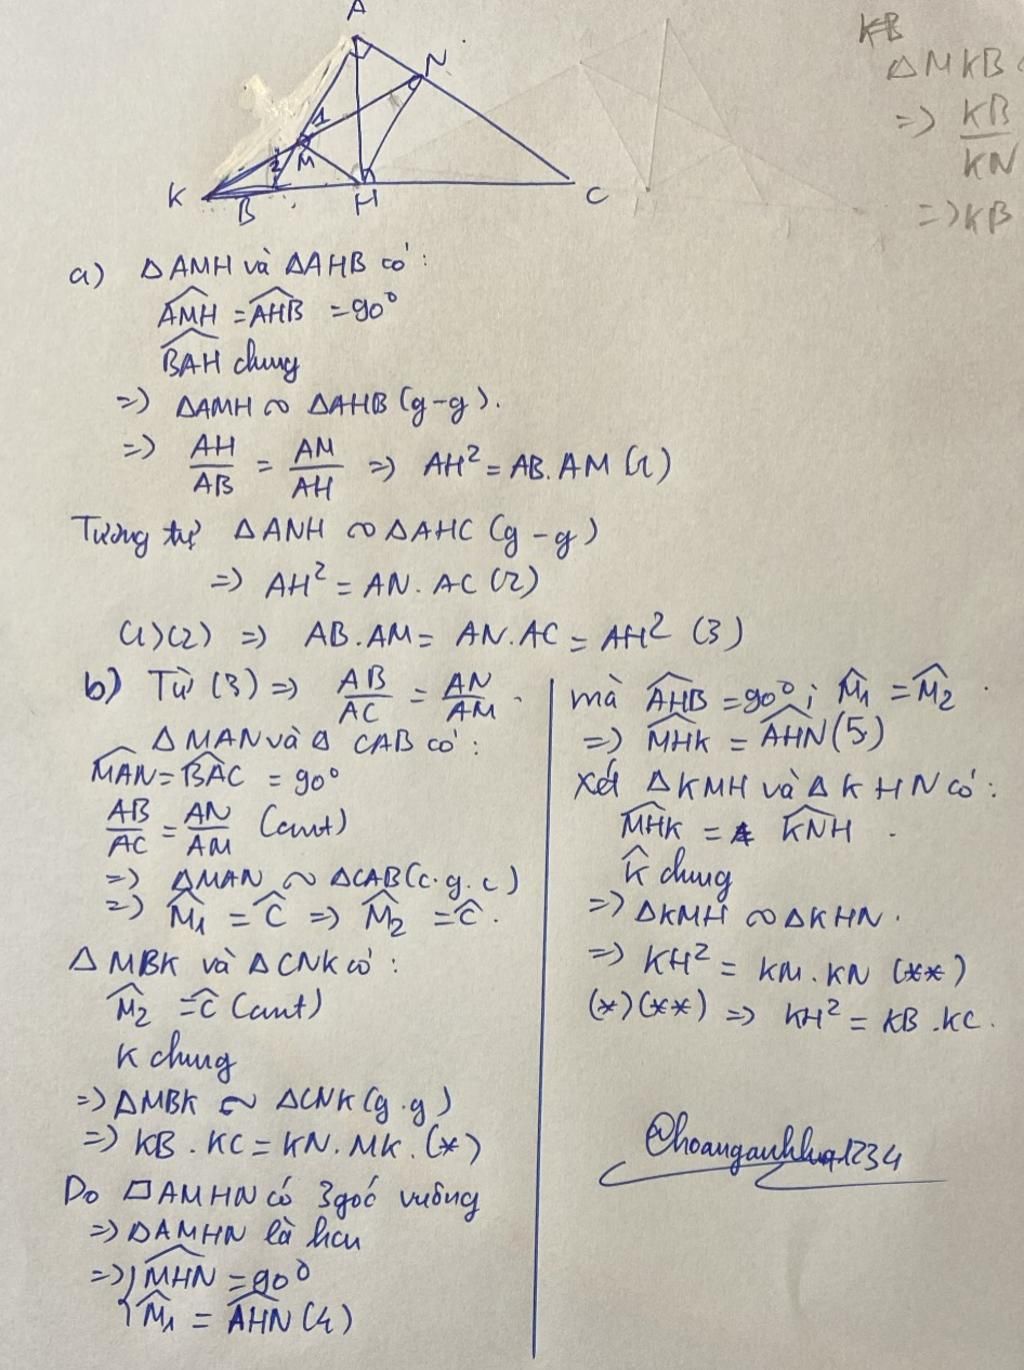 A
N
1
2
M
K
B
H
C
KB
△MKB
=> KB/KN
=> KB
a) △AMH và △AHB có:
AMH = AHB = 90°
BAH chung
=> △AMH ∽ △AHB (g-g).
=> AH/AB = AM/AH => AH² = AB.AM (1)
Tương tự △ANH ∽ △AHC (g-g)
=> AH² = AN.AC (2)
(1)(2) => AB.AM = AN.AC = AH² (3)
b) Từ (3) => AB/AC = AN/AM.
△MAN và △CAB có:
MAN = BAC = 90°
AB/AC = AN/AM (cmt)
=> △MAN ∽ △CAB (c.g.c)
=> M₁ = C => M₂ = C.
△MBK và △CNK có:
M₂ = C (cmt)
K chung
=> △MBK ∽ △CNK (g.g)
=> KB.KC = KN.MK. (*)
Do □AMHN có 3 góc vuông
=> □AMHN là hcn
=> { MHN = 90°
M₁ = AHN (4)
mà AHB = 90°; M₁ = M₂.
=> MHK = AHN (5)
Xét △KMH và △KHN có:
MHK = KNH.
K chung
=> △KMH ∽ △KHN.
=> KH² = KM.KN (**)
(*)(**) => KH² = KB.KC.